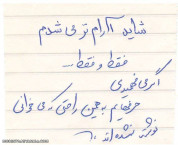 شاید آرام تر می شدم
فقط و فقط ..
اگر می فهمیدی
حرفهایم به همین راحتی که می خوانی
نوشته نشده اند